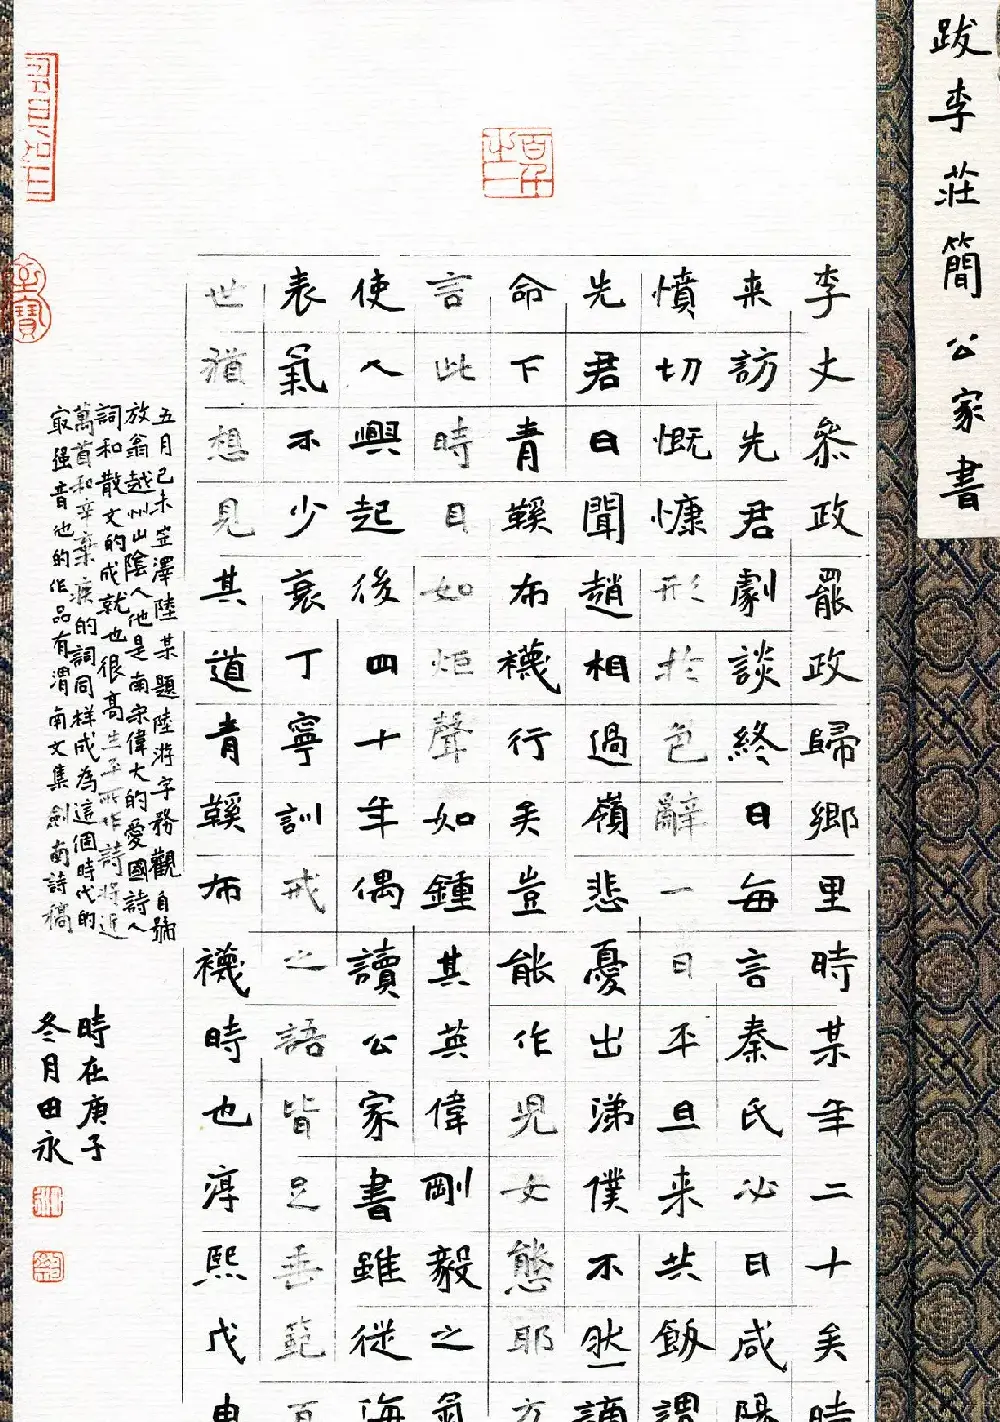 跋李莊簡公家書
李丈叅政罷政歸鄉里時某年二十矣時
来訪先君劇談終日每言秦氏必日咸陽
憤切慨慷形於色辭一日平旦来共飯謂
先君曰聞趙相過嶺悲憂出涕僕不然謫
命下青鞵布襪行矣豈能作兒女態耶方
言此時目如炬聲如鍾其英偉剛毅之氣
使人興起後四十年偶讀公家書雖徙海
表氣不少衰丁寧訓戒之語皆足垂範百
世猶想見其道青鞵布襪時也淳熙戊申
五月己未笠澤陸某題陸游字務觀自號
放翁越州山陰人他是南宋偉大的愛國詩人
詞和散文的成就也很高生平所作詩將近
萬首和辛棄疾的詞同样成為這個時代的
最强音他的作品有渭南文集劍南詩稿
時在庚子
冬月田永